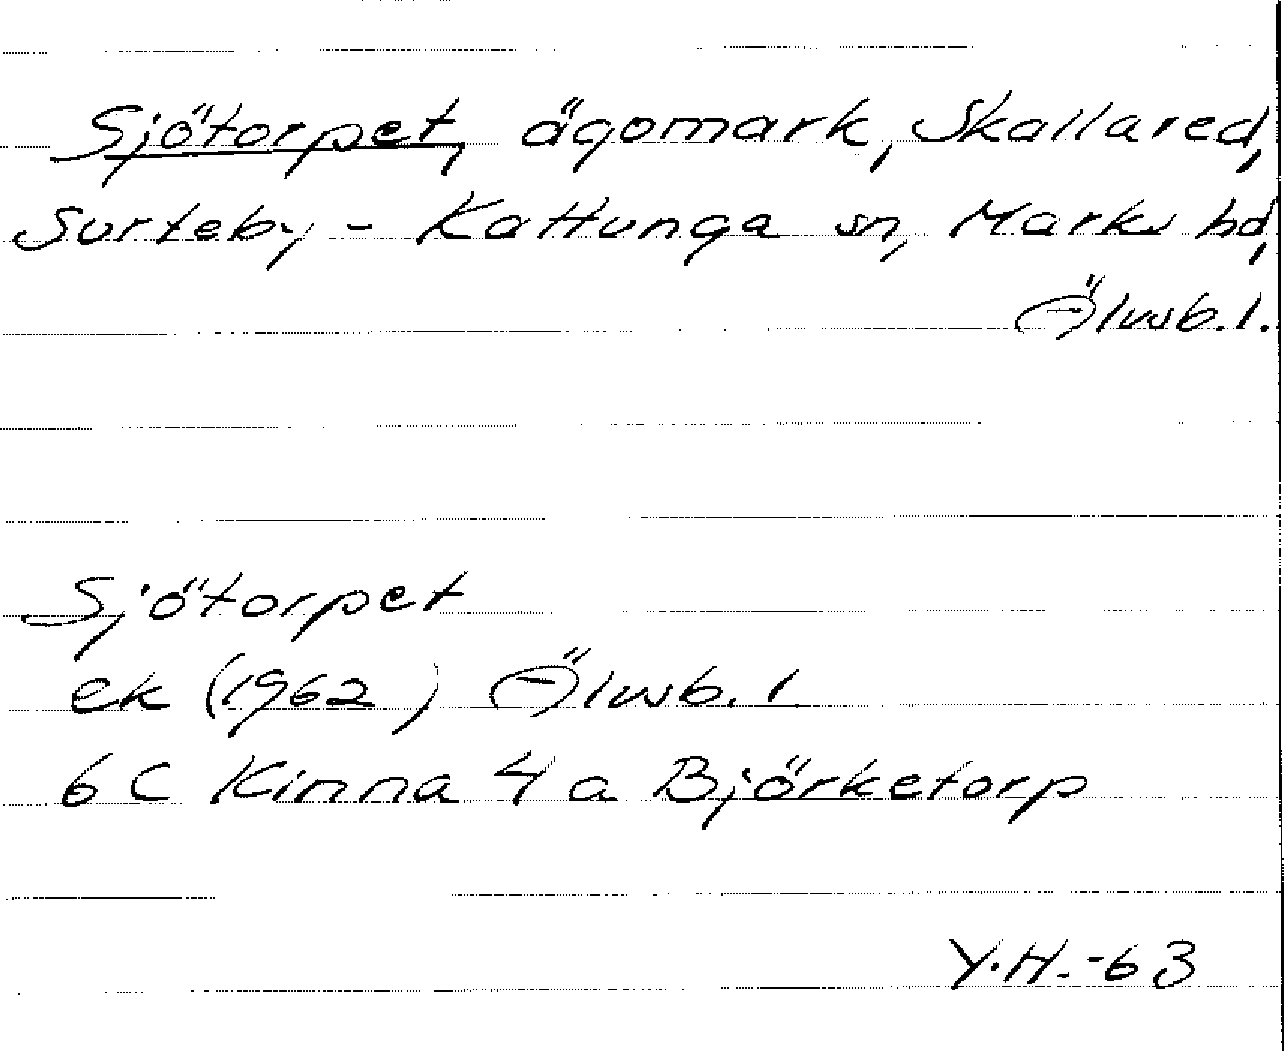 Sjötorpet, ägomark, Skallared,
Surteby - Kattunga sn, Marks hd,
Älvsb. l.
Sjötorpet
ek (1962) Älvsb. l
6 C Kinna 4 a Björketorp
Y.H. -63